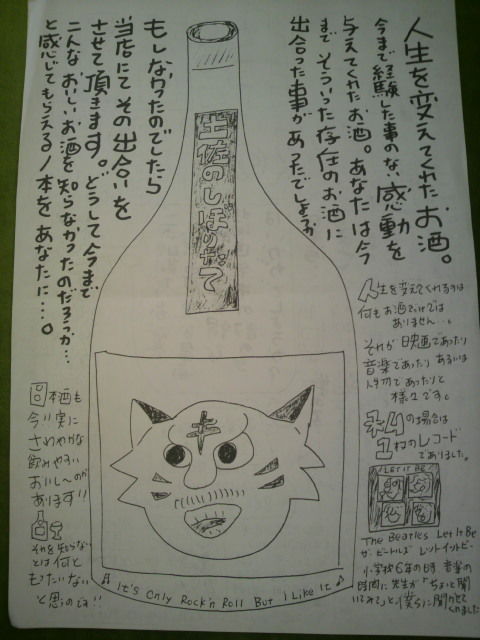 人生を変えてくれたお酒。
今まで経験した事のない感動を
与えてくれたお酒。あなたは今
まで そういった存在のお酒に
出合った事があったでしょうか
もしなかったのでしたら
当店にて その出合いを
させて頂きます。どうして今まで
こんな おいしいお酒を知らなかったのだろうか…
と感じてもらえる1本をあなたに…。
土佐のしぼりたて
人生を変えてくれるのは
何もお酒だけでは
ありません…。
それが 映画であったり
音楽であったり あるいは
人物であったりと
様々です。
私の場合は
1枚のレコード
でありました。
LET IT BE
The Beatles Let It Be
ザ・ビートルズ レットイットビー
小学校6年の時 音楽の
時間に 先生が「ちょっと聞
いてみて」と僕らに聞かせて
くれました
日本酒も
今!!実に
さわやかな
飲みやすい
おいし〜のが
あります!!
それを知らない
とは何と
もったいない
と思うのです!!
♫ It's Only Rock'n Roll But I Like It ♪